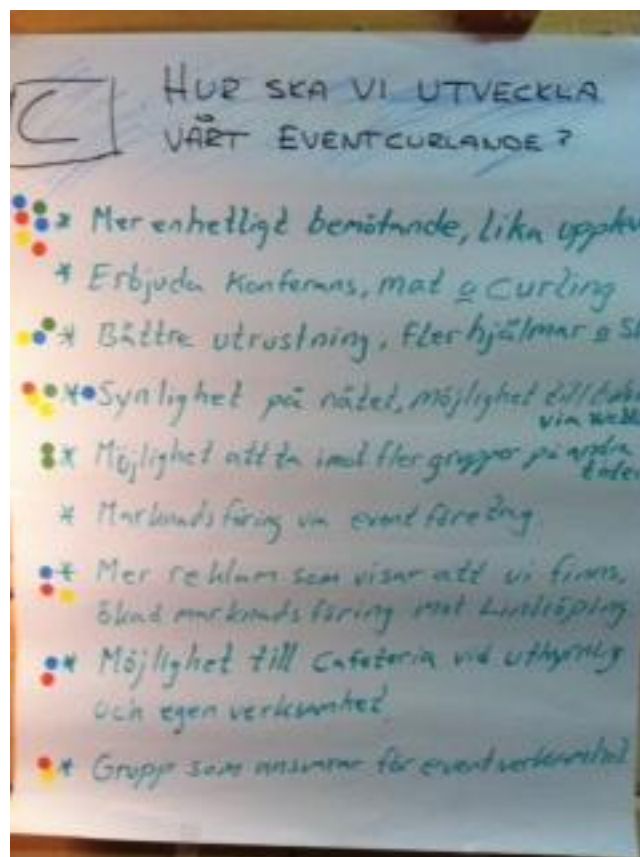 C
HUR SKA VI UTVECKLA
VÅRT EVENTCURLANDE?
* Mer enhetligt bemötande, lika
* Erbjuda Konferans, mat o Curling
* Bättre utrustning, fler hjälmar o
* Synlighet på nätet, möjlighet till
via
* Möjlighet att ta imot fler grupper på andra
tider
* Marknadsföring via eventföretag
* Mer reklam som visar att vi finns,
ökad marknadsföring mot Linköping
* Möjlighet till Cafeteria vid uthyrning
och egen verksamhet
* Grupp som ansvarar för eventverksamhet